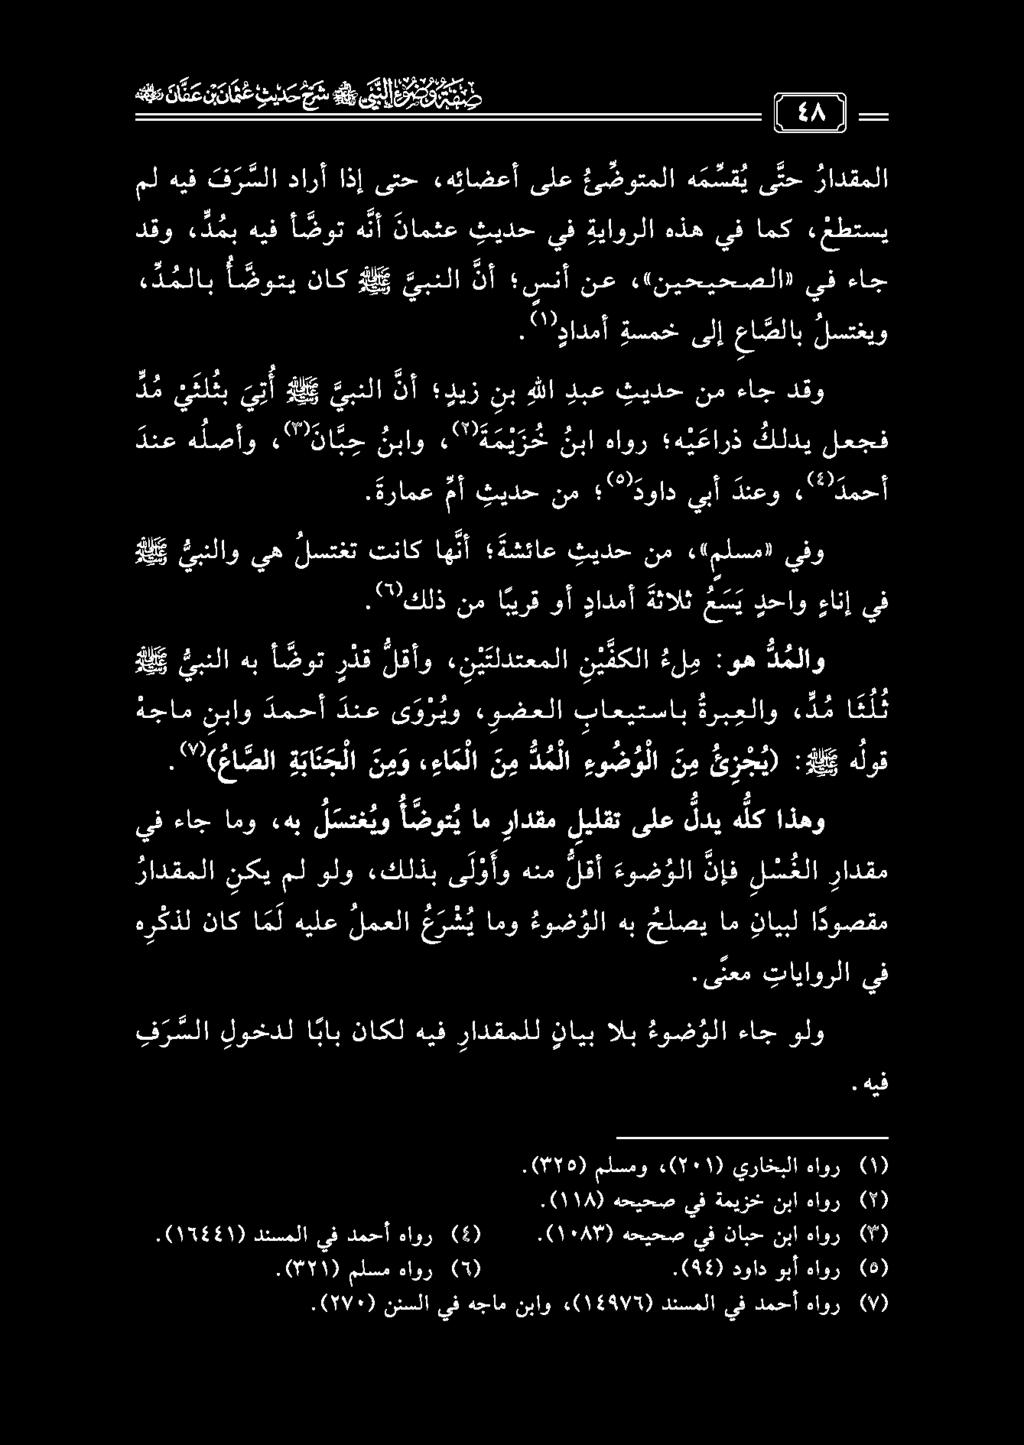 صِفَةُ وُضُوءِ النَّبِيِّ ﷺ شَرْحُ حَدِيثِ عُثْمَانَ بْنِ عَفَّانَ رضي الله عنه
٤٨
المقدارُ حتَّى يُقسِّمَه المتوضِّئُ على أعضائِه، حتى إذا أراد السَّرَفَ فيه لم
يستطعْ، كما في هذه الروايةِ في حديثِ عثمانَ أنَّه توضَّأ فيه بمُدٍّ، وقد
جاء في «الصحيحين»، عن أنسٍ؛ أنَّ النبيَّ ﷺ كان يتوضَّأُ بالمُدِّ،
ويغتسلُ بالصَّاعِ إلى خمسةِ أمدادٍ(١).
وقد جاء من حديثِ عبدِ اللهِ بنِ زيدٍ؛ أنَّ النبيَّ ﷺ أُتِيَ بثُلثَيْ مُدٍّ
فجعل يدلكُ ذراعَيْه؛ رواه ابنُ خُزَيْمَةَ(٢)، وابنُ حِبَّانَ(٣)، وأصلُه عندَ
أحمدَ(٤)، وعندَ أبي داودَ(٥)؛ من حديثِ أمِّ عمارةَ.
وفي «مسلمٍ»، من حديثِ عائشةَ؛ أنَّها كانت تغتسلُ هي والنبيُّ ﷺ
في إناءٍ واحدٍ يَسَعُ ثلاثةَ أمدادٍ أو قريبًا من ذلك(٦).
والمُدُّ هو: مِلءُ الكفَّيْنِ المعتدلتَيْنِ، وأقلُّ قدْرٍ توضَّأ به النبيُّ ﷺ
ثُلُثَا مُدٍّ، والعِبرةُ باستيعابِ العضوِ، ويُرْوَى عندَ أحمدَ وابنِ ماجهْ
قولُه ﷺ: (يُجْزِئُ مِنَ الْوُضُوءِ الْمُدُّ مِنَ الْمَاءِ، وَمِنَ الْجَنَابَةِ الصَّاعُ)(٧).
وهذا كلُّه يدلُّ على تقليلِ مقدارِ ما يُتوضَّأُ ويُغتسَلُ به، وما جاء في
مقدارِ الغُسْلِ فإنَّ الوُضوءَ أقلُّ منه وأَوْلَى بذلك، ولو لم يكنِ المقدارُ
مقصودًا لبيانِ ما يصلحُ به الوُضوءُ وما يُشْرَعُ العملُ عليه لَمَا كان لذكْرِه
في الرواياتِ معنًى.
ولو جاء الوُضوءُ بلا بيانٍ للمقدارِ فيه لكان بابًا لدخولِ السَّرَفِ
فيه.
(١) رواه البخاري (٢٠١)، ومسلم (٣٢٥).
(٢) رواه ابن خزيمة في صحيحه (١١٨).
(٣) رواه ابن حبان في صحيحه (١٠٨٣). (٤) رواه أحمد في المسند (١٦٤٤١).
(٥) رواه أبو داود (٩٤). (٦) رواه مسلم (٣٢١).
(٧) رواه أحمد في المسند (١٤٩٧٦)، وابن ماجه في السنن (٢٧٠).